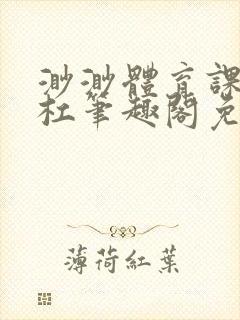 渺渺體育課
杜筆趣閣免
薄荷紅葉